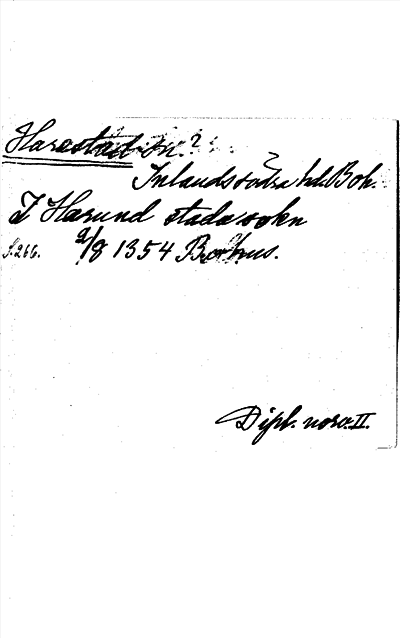 Harestad sn.?
Inlands södra hd. Boh.
I Harund stada sokn
S. 266. 2/8 1354 Bohus.
Dipl. norv. II.